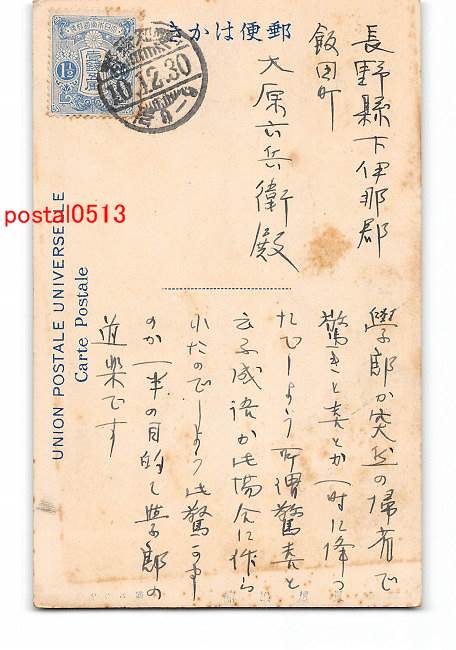 きかは便郵
長野縣下伊那郡
飯田町
大原六兵衛殿
學郎が突然の帰省で
驚きと喜とが一時に降つ
たでしよう所謂驚喜と
云ふ成語が此場合に作ら
れたのでしよう此驚かす
のが一半の目的で學郎の
道楽です
UNION POSTALE UNIVERSELLE
Carte Postale
postal0513
1½
10.12.30